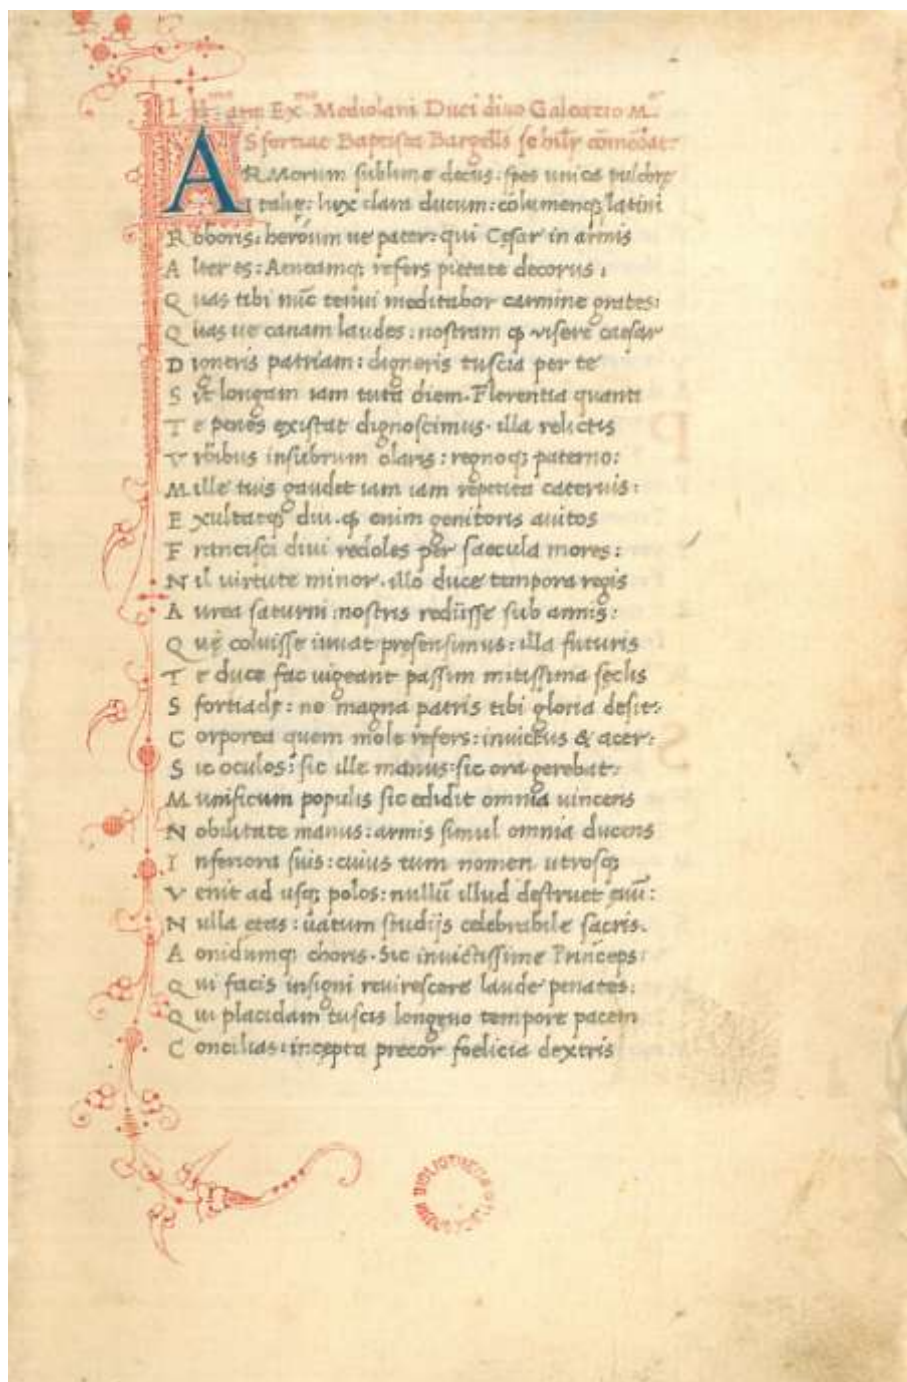 Ill. ant Ex. Mediolani Duci diuo Galeatio M.
Sfortiae Baptista Bargellis se hūlr cōmēdat.
ARMorum sublime decus: spes unica pulchrę
I talię: lux clara ducum: columenq; latini
R oboris: heroum ue pater: qui Cęsar in armis
A lter es: Aeneamq; refers pietate decorus:
Q uas tibi nūc tenui meditabor carmine grates:
Q uas ue canam laudes: nostram ꝙ uisere caesar
D igneris patriam: digneris tuscia per te
S it longam iam tuta diem. Florentia quanti
T e penes existat dignoscimus. illa relictis
V rbibus insubrum claris: regnoq; paterno:
M ille tuis gaudet iam iam repetita cateruis:
E xultatq; diu. ꝙ enim genitoris auitos
F rancisci diui redoles per saecula mores:
N il uirtute minor. illo duce tempora regis
A urea saturni nostris rediisse sub annis:
Q uę coluisse iuuat presensimus: illa futuris
T e duce fac uigeant passim mitissima seclis
S fortiadę: ne magna patris tibi gloria desit:
C orporea quem mole refers: inuictus & acer:
S ic oculos: sic ille manus: sic ora gerebat:
M unificum populis sic edidit omnia uincens
N obilitate manus: armis simul omnia ducens
I nferiora suis: cuius tum nomen utrosq;
V enit ad usq; polos: nullū illud destruet ęuū:
N ulla etas: uatum studijs celebrabile sacris.
A onidumq; choris. Sic inuictissime Princeps:
Q ui facis insigni reuirescere laude penates:
Q ui placidam tuscis longeuo tempore pacem
C oncilias: incepta precor foelicia dextris